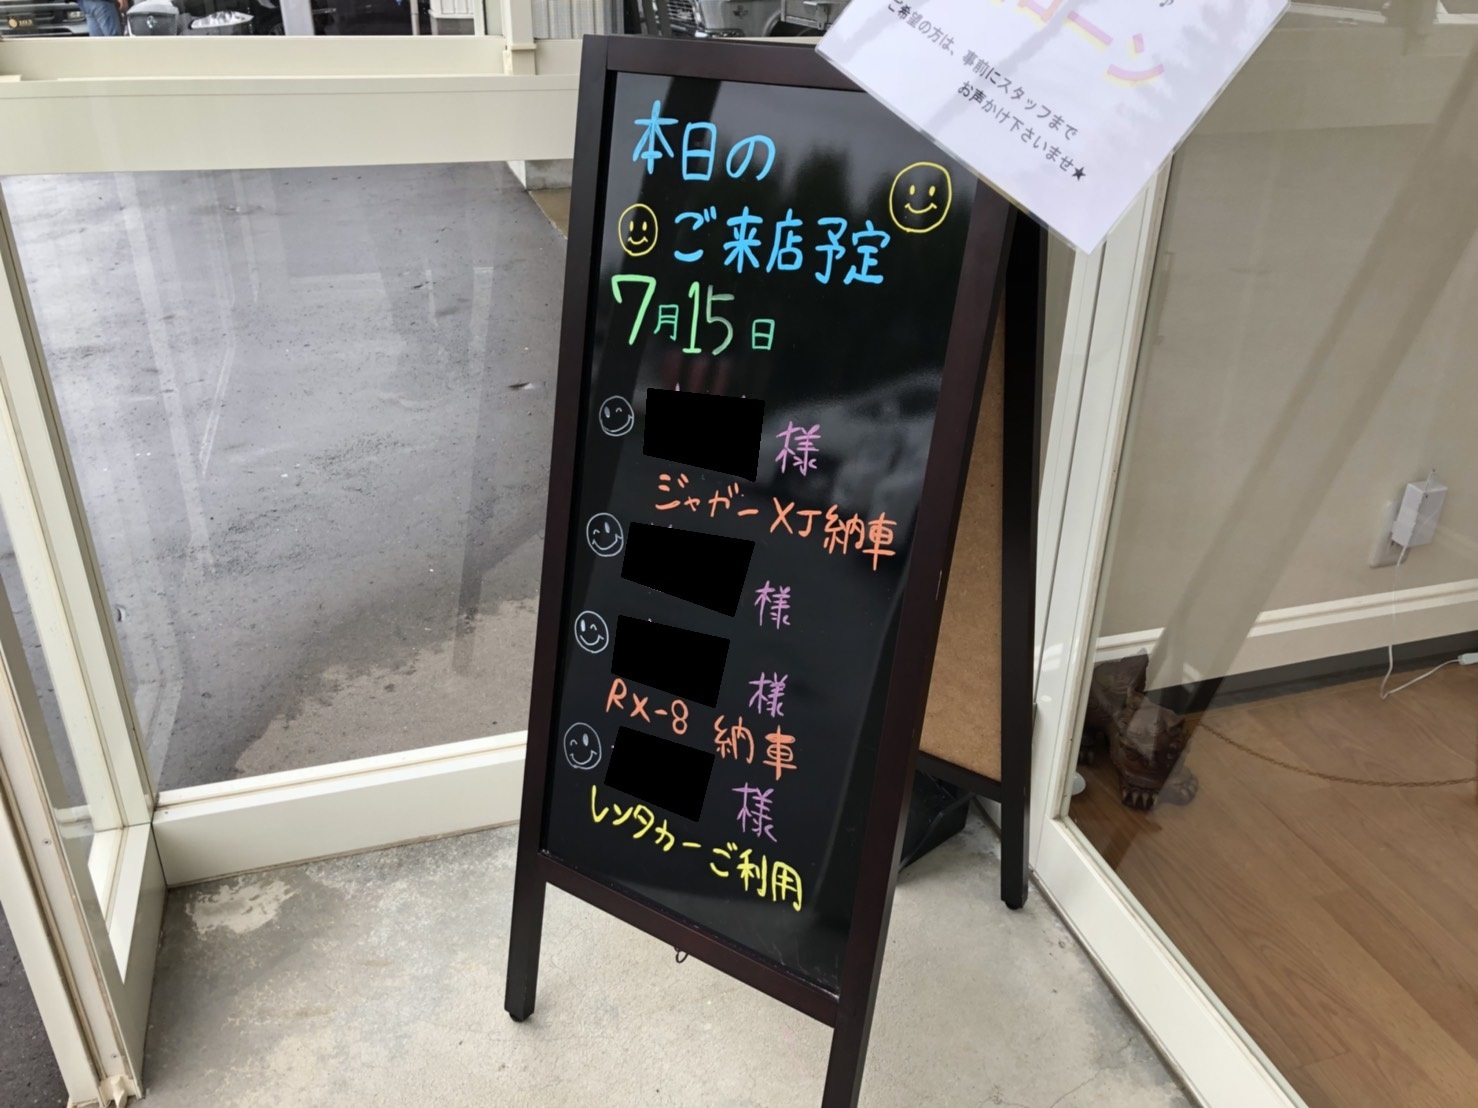 本日の
ご来店予定
7月15日
様
ジャガーXJ納車
様
様
RX-8 納車
様
レンタカーご利用
ローン
ご希望の方は、事前にスタッフまで
お声かけ下さいませ★